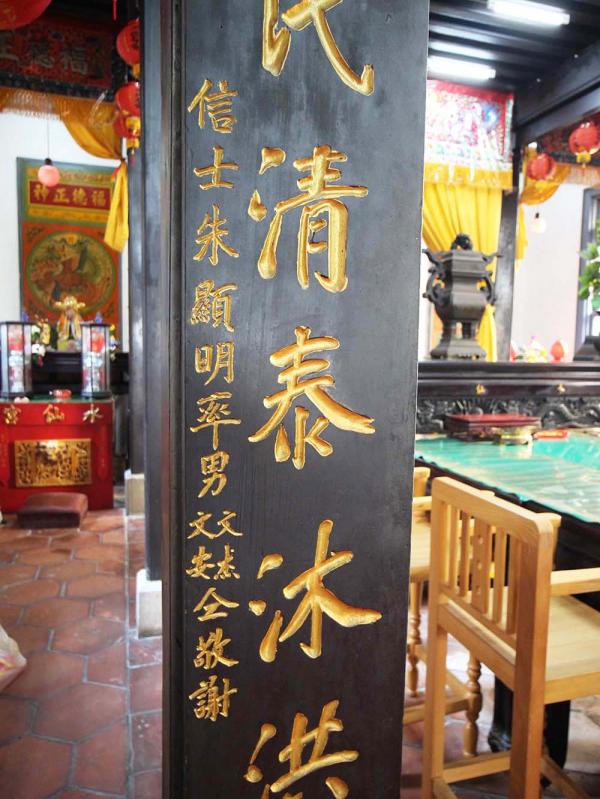 清泰沐洪
信士朱顯明率男文杰文安仝敬謝
福德正神
水仙宮
仙